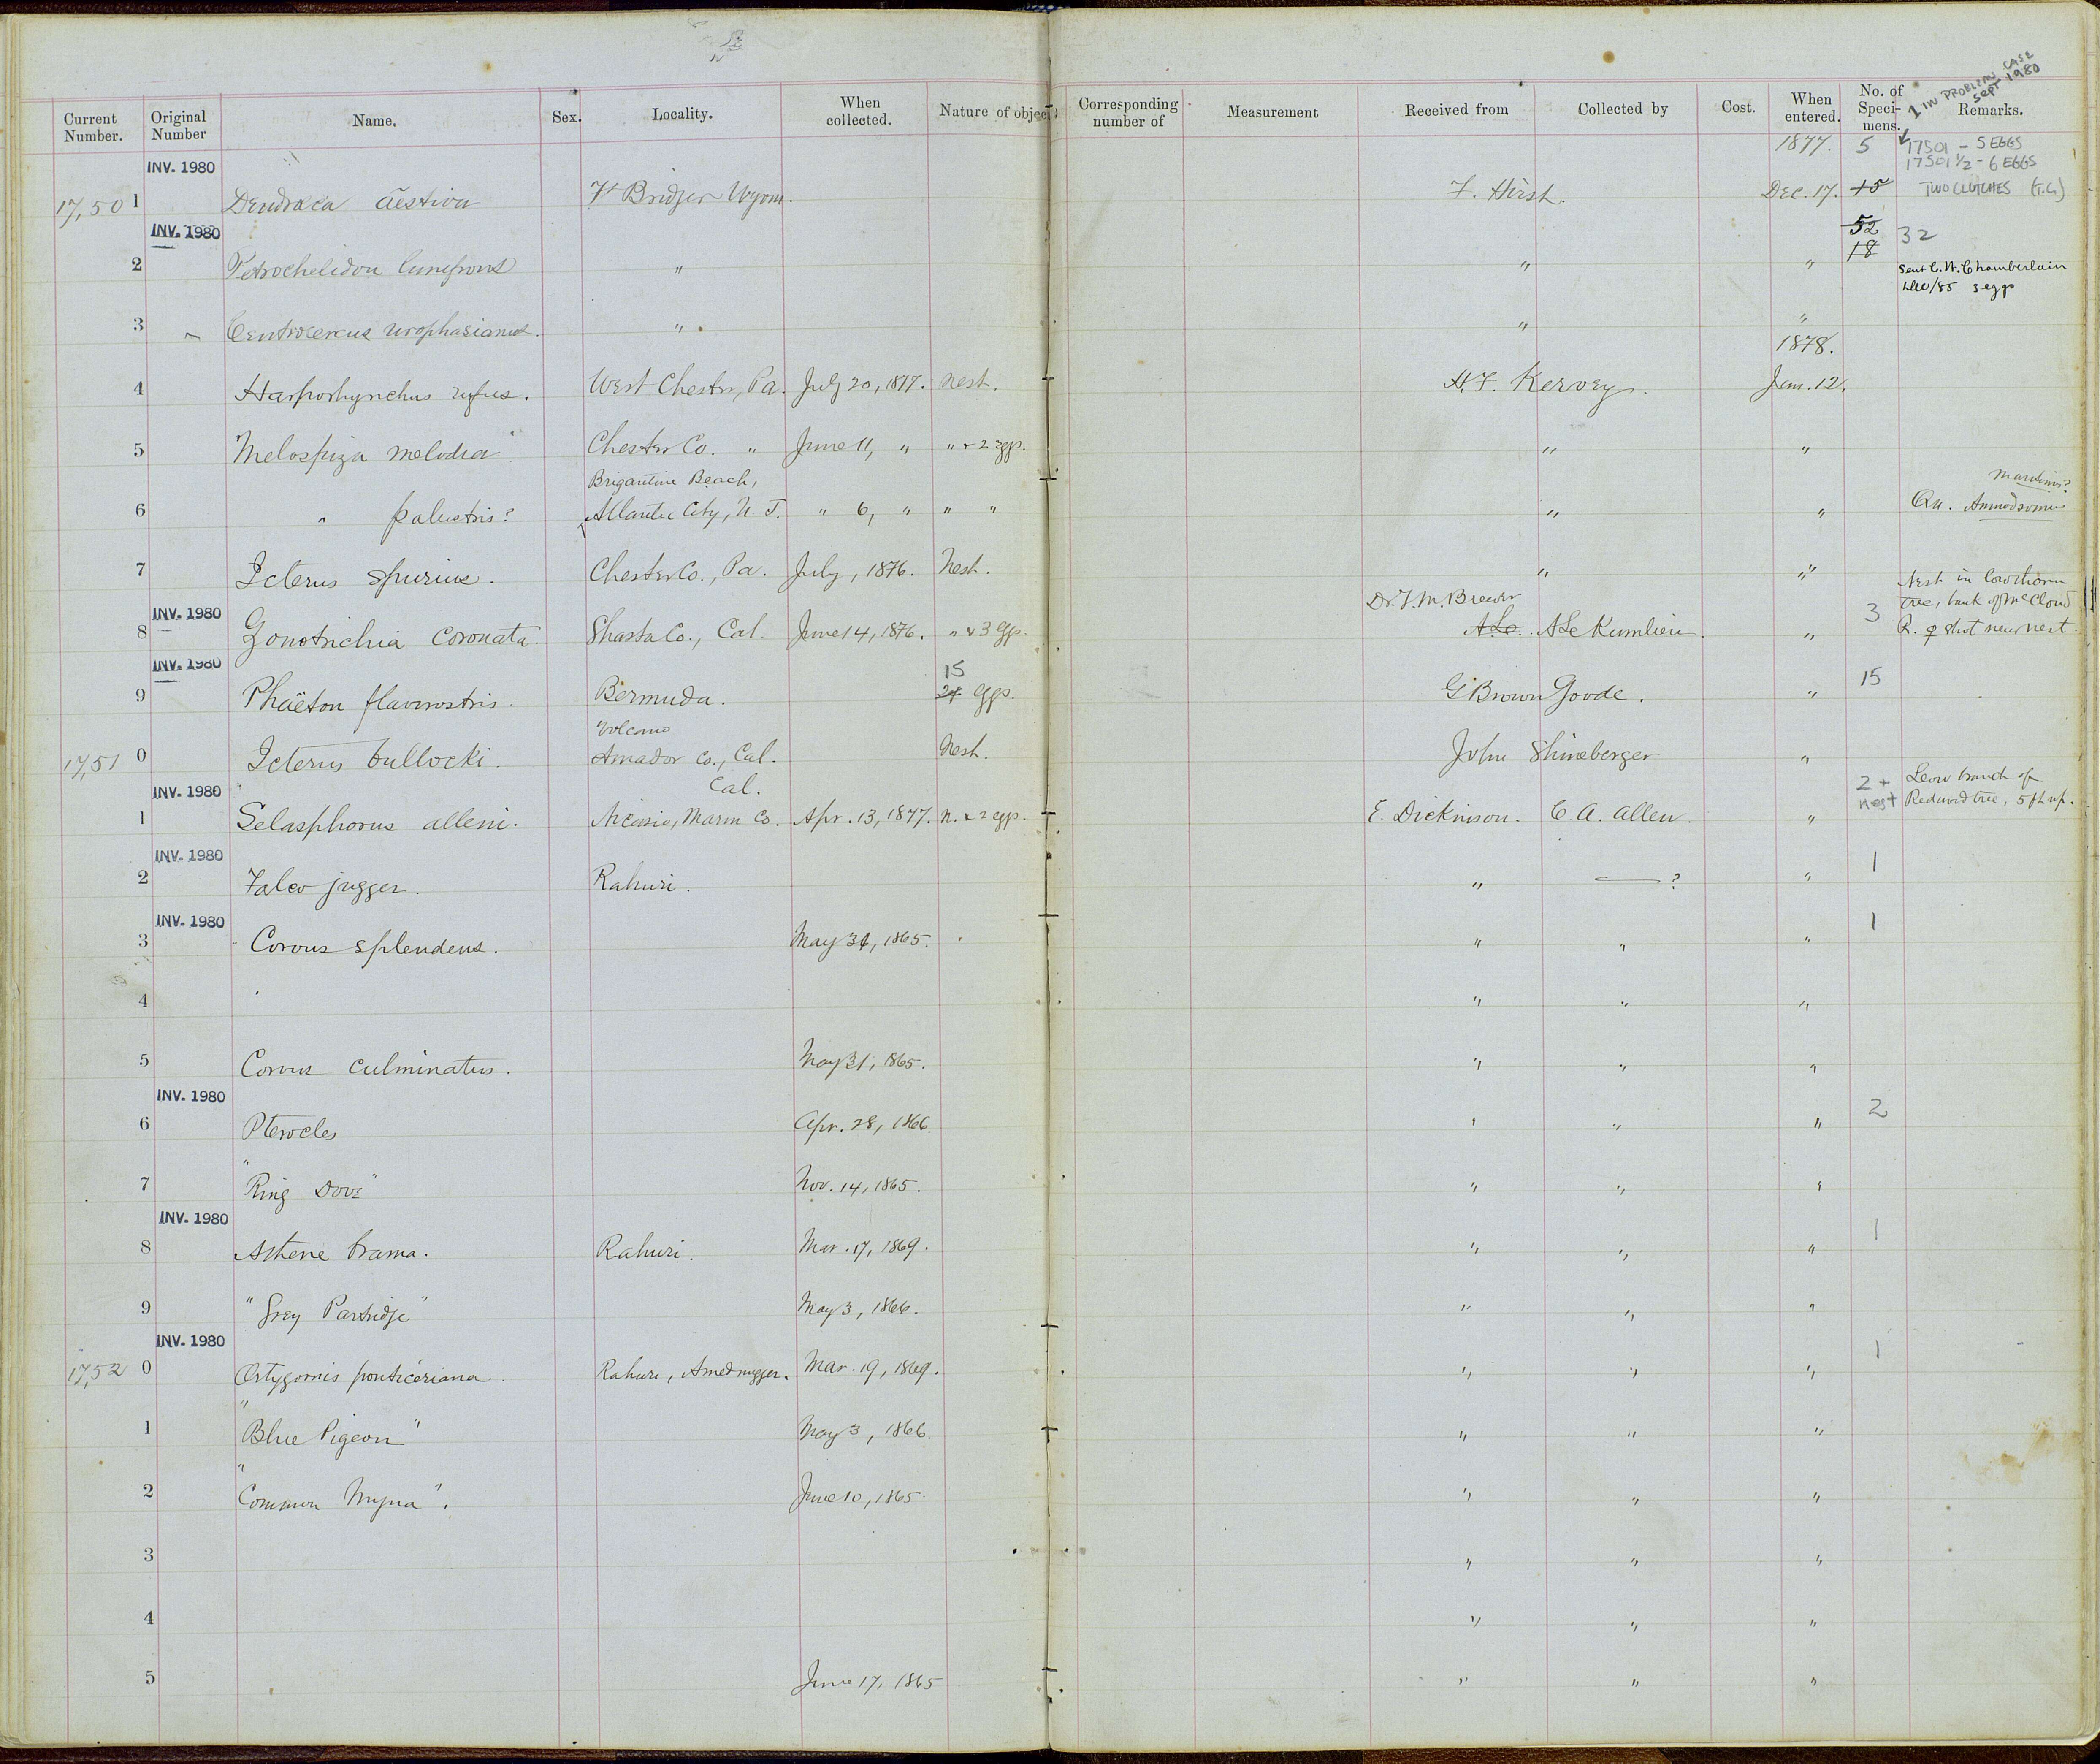 1 IN PROBLEM CASE
SEPT 1980
Current Number. Original Number Name. Sex. Locality. When collected. Nature of object Corresponding number of Measurement Received from Collected by Cost. When entered. No. of Specimens. Remarks.
1877. 5 17501 - 5 EGGS
INV. 1980 17501 1/2 - 6 EGGS
17,50 1 Dendroeca aestiva Ft Bridger Wyom. F. Hirst. Dec. 17. 15 TWO CLUTCHES (T.G.)
INV. 1980 52 32
18
2 Petrochelidon lunifrons " " " Sent C. W. Chamberlain
Dec/85 3 eggs
3 Centrocercus urophasianus. " " "
1878.
4 Harporhynchus rufus. West Chester, Pa. July 20, 1877. Nest. H. F. Kervey. Jan. 12.
5 Melospiza melodia Chester Co. " June 11, " " + 2 eggs. " "
Brigantine Beach, Maritimus?
6 " palustris? Atlantic City, N. J. " 6, " " " " " Qu. Ammodromus
7 Icterus spurius. Chester Co., Pa. July, 1876. Nest. " "
Nest in low thorn
INV. 1980 Dr. T. M. Brewer 3 tree, bank of McCloud
8 Zonotrichia coronata. Shasta Co., Cal. June 14, 1876. " + 3 eggs. A Le. A Le Kumlien. " R. ♀ shot near nest.
INV. 1980 15 15
9 Phaëton flavirostris. Bermuda. 24 eggs. G Brown Goode. "
Volcano
17,51 0 Icterus bullocki. Amador Co., Cal. Nest. John Shineberger "
INV. 1980 Cal. 2 + nest Low branch of
1 Selasphorus alleni. Nicasio, Marin Co. Apr. 13, 1877. N. + 2 eggs. E. Dickinson. C. A. Allen. " Redwood tree, 5 ft up.
INV. 1980
2 Falco jugger. Rahuri. " —— ? " 1
INV. 1980
3 Corvus splendens. May 31, 1865. " " " 1
4 " " "
5 Corvus culminatus. May 31, 1865. " " "
INV. 1980
6 Pterocles Apr. 28, 1866. " " " 2
7 "Ring Dove" Nov. 14, 1865. " " "
INV. 1980
8 Athene brama. Rahuri. Mar. 17, 1869. " " " 1
9 "Grey Partridge" May 3, 1866. " " "
INV. 1980
17,52 0 Ortygornis ponticeriana. Rahuri, Amednugger. Mar. 19, 1869. " " " 1
1 "Blue Pigeon" May 3, 1866. " " "
2 "Common Myna". June 10, 1865. " " "
3 " " "
4 " " "
5 June 17, 1865 " " "